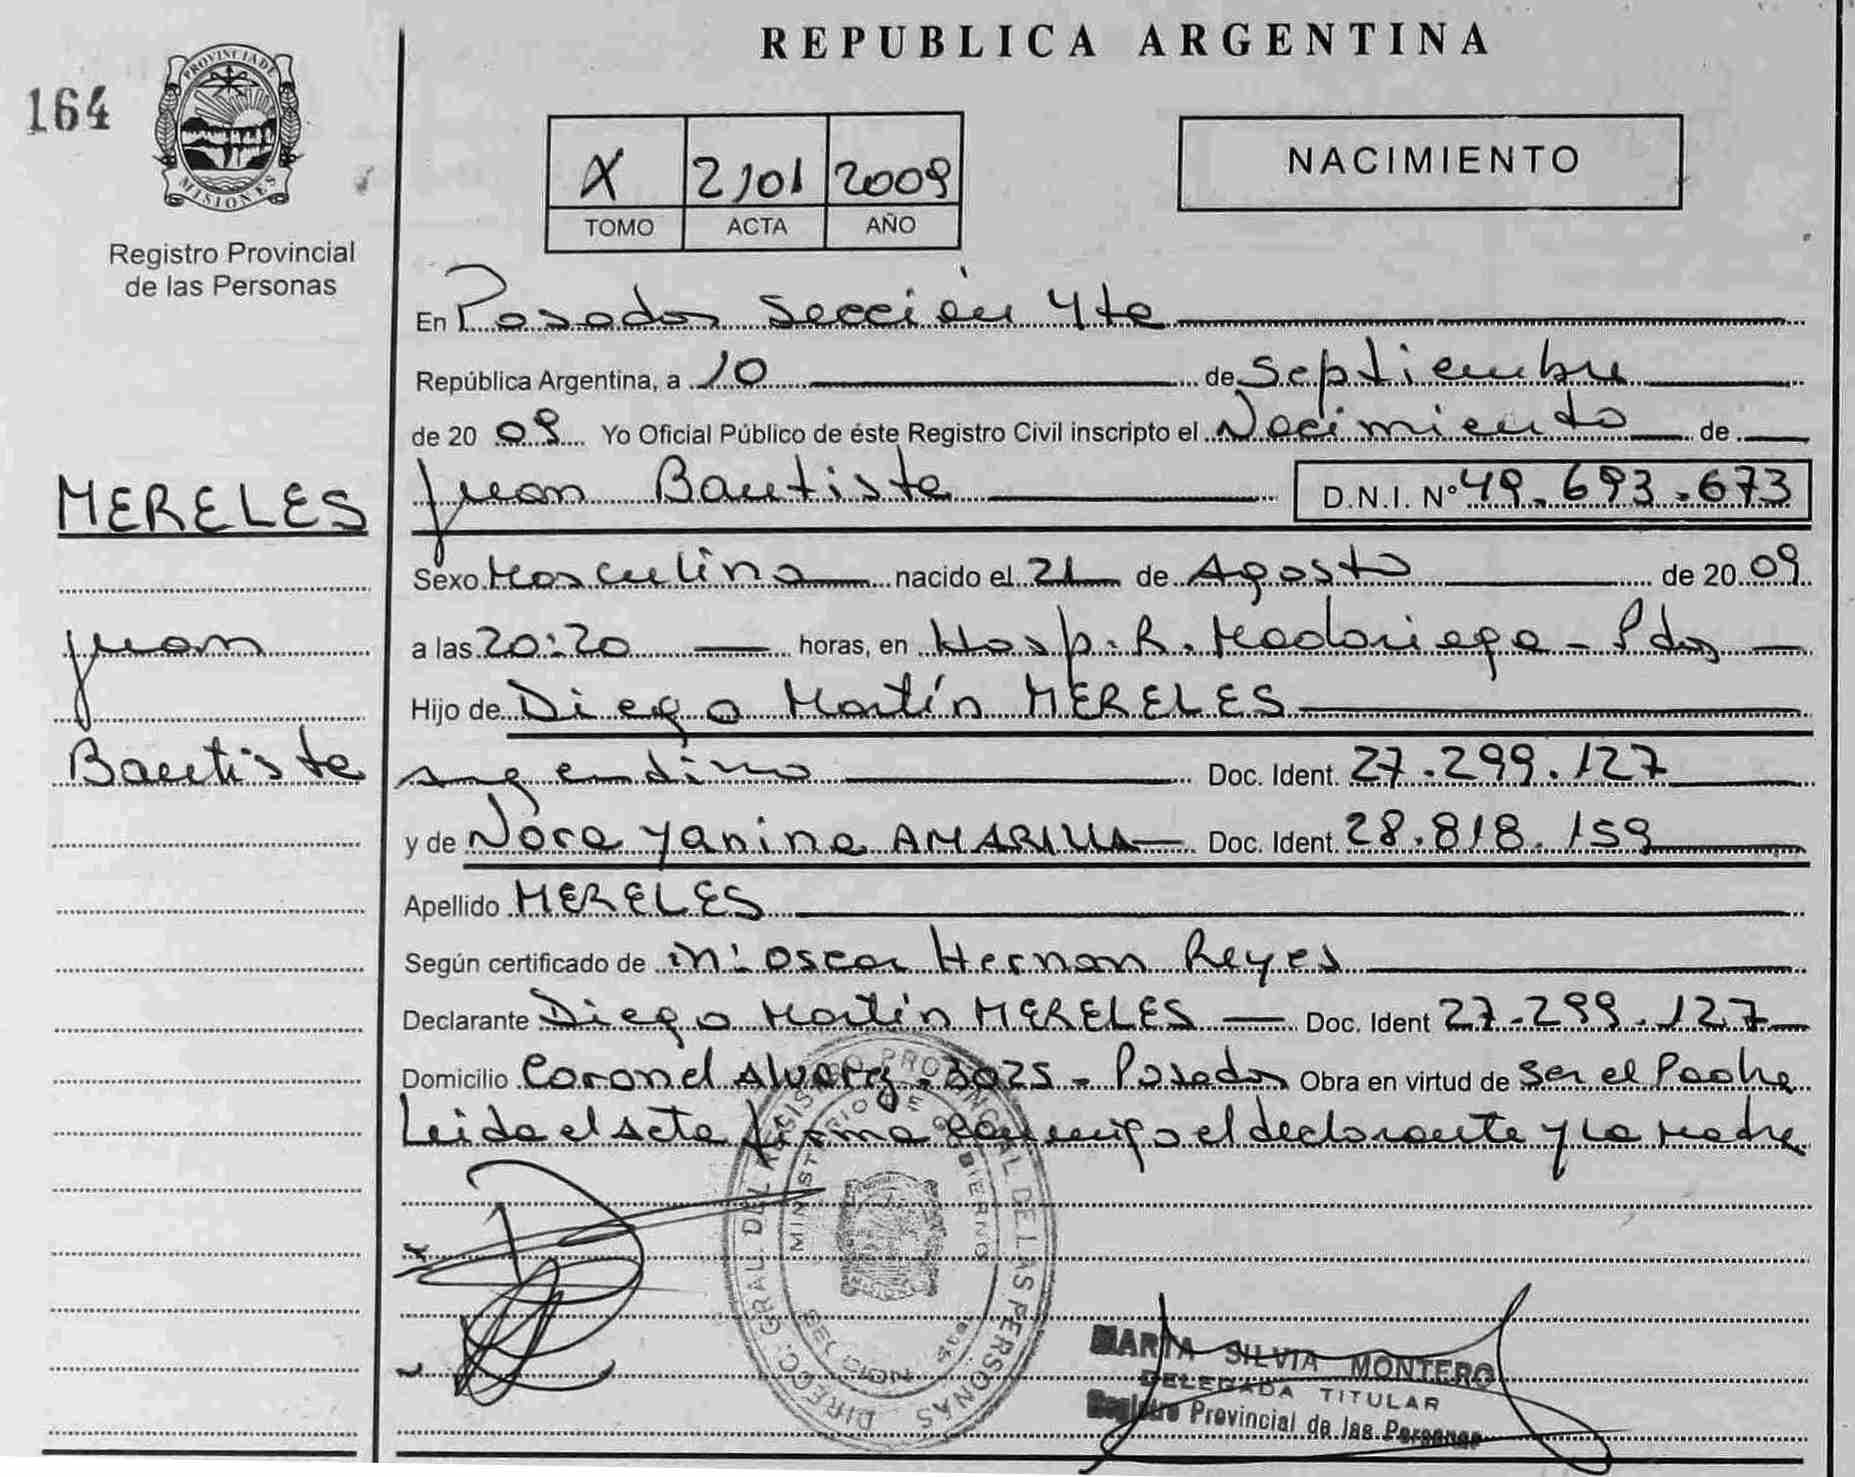 REPUBLICA ARGENTINA
164
PROVINCIA DE
MISIONES
Registro Provincial
de las Personas
X 2101 2009
TOMO ACTA AÑO
NACIMIENTO
En Posadas Sección 4ta
República Argentina, a 10 de Septiembre
de 20 09 Yo Oficial Público de éste Registro Civil inscripto el Nacimiento de
Juan Bautista D.N.I. Nº 49.693.673
MERELES
Juan
Bautista
Sexo Masculino nacido el 21 de Agosto de 20 09
a las 20:20 horas, en Hosp. R. Madariaga - Pdas
Hijo de Diego Martín MERELES
argentino Doc. Ident. 27.299.127
y de Nora Yanina AMARILLA Doc. Ident. 28.818.159
Apellido MERELES
Según certificado de Oscar Hernan Reyes
Declarante Diego Martín MERELES Doc. Ident 27.299.127
Domicilio Coronel Alvarez 3025 - Posadas Obra en virtud de Ser el Padre
Leida el acta firma conmigo el declarante y la Madre
DIRECC. GRAL. DEL REGISTRO PROVINCIAL DE LAS PERSONAS
MINISTERIO DE GOBIERNO
MARTA SILVIA MONTERO
DELEGADA TITULAR
Registro Provincial de las Personas